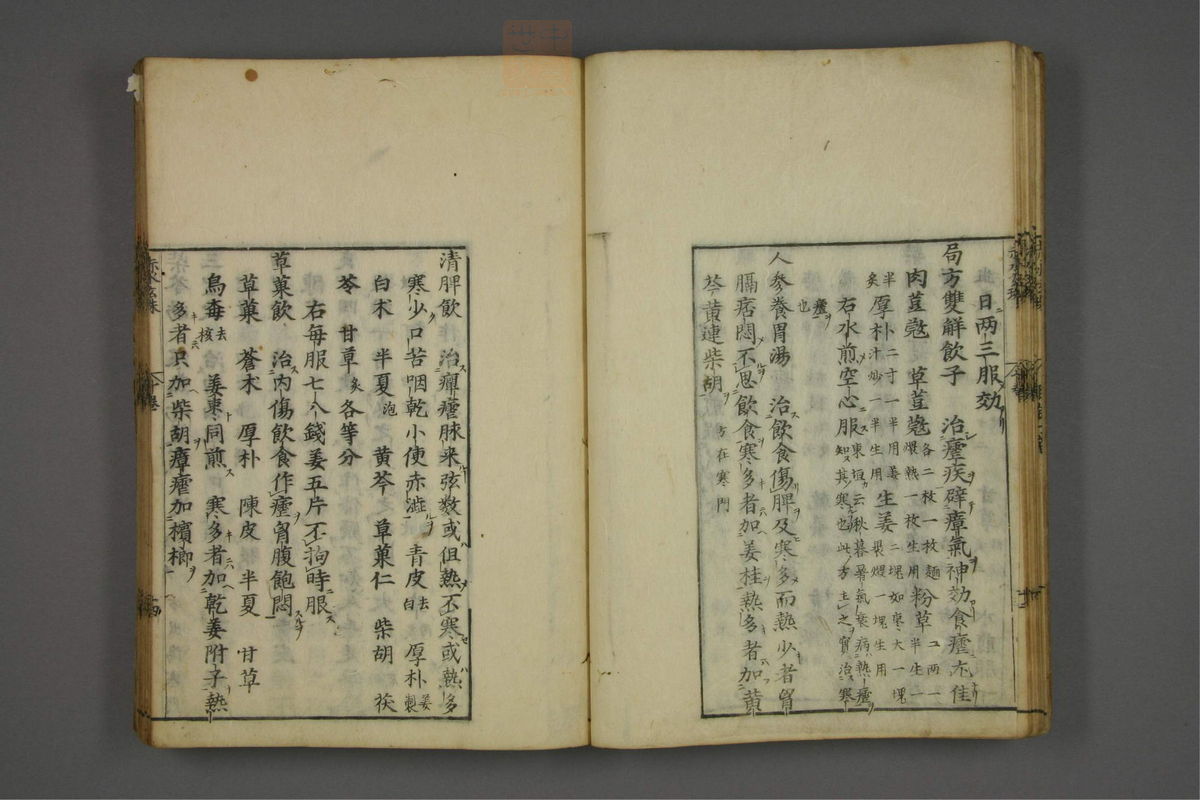 日两三服効
局方雙解飲子 治瘧疾辟瘴氣神効食瘧尤佳
肉荳蔻 草荳蔻各二枚一枚麵煨熟一枚生用 粉草二两一半生一半
炙 厚朴二寸一半用姜汁炒一半生用 生姜二塊如棗大一塊煨一塊生用
右水煎空心服東垣云秋暮暑氣衰病熱瘧知其寒也此方主之實治寒
瘧也
人參養胃湯 治飲食傷脾及寒多而熱少者胷
膈痞悶不思飲食寒多者加姜桂熱多者加黄
芩黄連柴胡 方在寒門
清脾飲 治癉瘧脉来弦数或但熱不寒或熱多
寒少口苦咽乾小便赤澁 青皮去白 厚朴姜製
白术 半夏泡 黄芩 草菓仁 柴胡 茯
苓 甘草炙各等分
右每服七八錢姜五片不拘時服
草菓飲 治内傷飲食作瘧胷腹飽悶
草菓 蒼术 厚朴 陳皮 半夏 甘草
烏毒去核 姜棗同煎 寒多者加乾姜附子熱
多者只加柴胡瘴瘧加檳榔